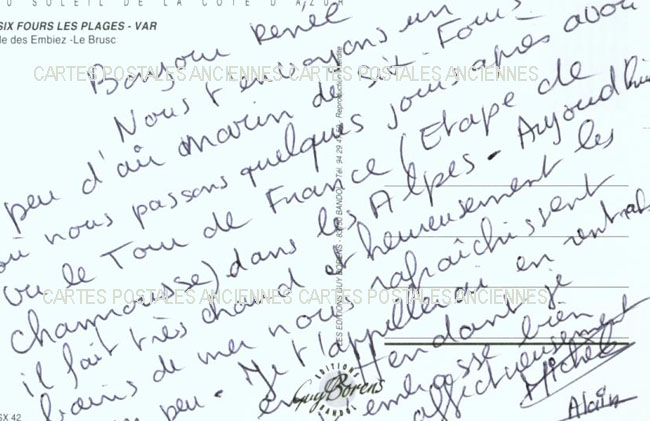 DU SOLEIL DE LA CÔTE D'AZUR
SIX FOURS LES PLAGES - VAR
Ile des Embiez - Le Brusc
CARTES POSTALES ANCIENNES CARTES POSTALES ANCIENNES
Bonjour Renée
Nous t'envoyons un
peu d'air marin de Six-Fours
où nous passons quelques jours après avoir
vu le Tour de France (Etape de
Chamrousse) dans les Alpes - Aujourd'hui
il fait très chaud et heureusement les
bains de mer nous rafraîchissent
un peu - Je t'appellerai en rentrant
en attendant je
embrasse bien
affectueusement
Michèle
Alain
CARTES POSTALES ANCIENNES CARTES POSTALES ANCIENNES
LES EDITIONS GUY BORENS - BANDOL Tél. 94 29 Reproduction
EDITIONS
Guy Borens
BANDOL
SX 42